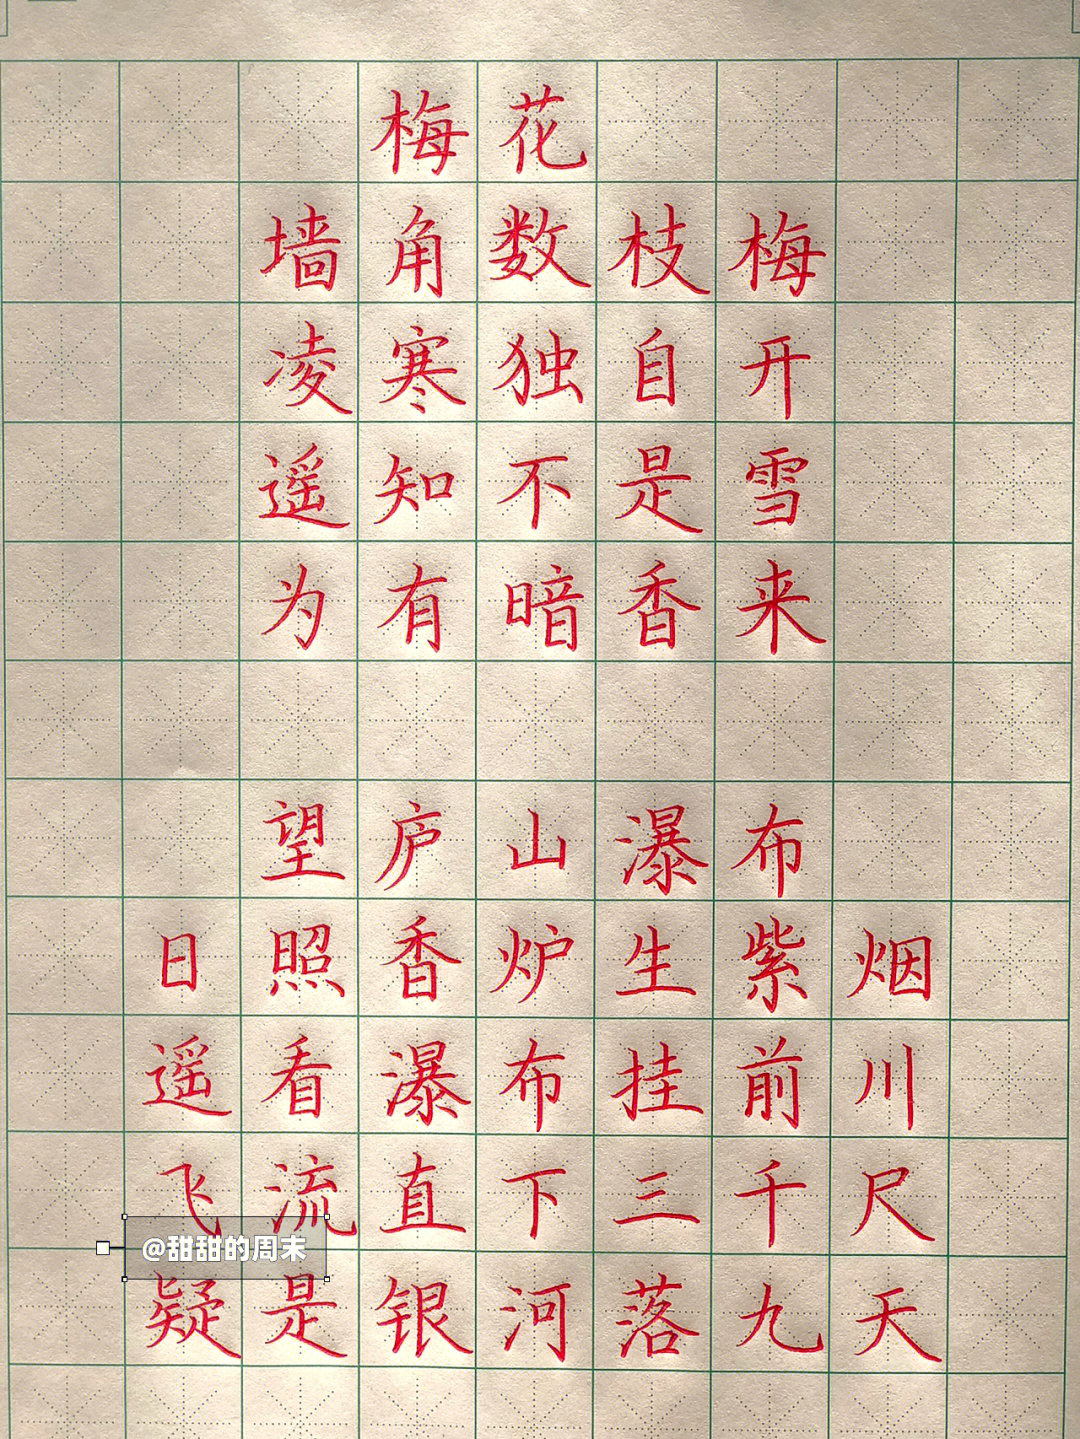 梅花
墙角数枝梅
凌寒独自开
遥知不是雪
为有暗香来
望庐山瀑布
日照香炉生紫烟
遥看瀑布挂前川
飞流直下三千尺
@甜甜的周末
疑是银河落九天